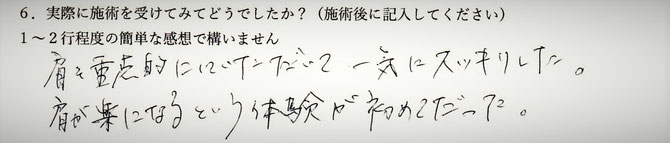 6．実際に施術を受けてみてどうでしたか？（施術後に記入してください）
1～2行程度の簡単な感想で構いません
肩を重点的にしていただいて一気にスッキリした。
肩が楽になるという体験が初めてだった。